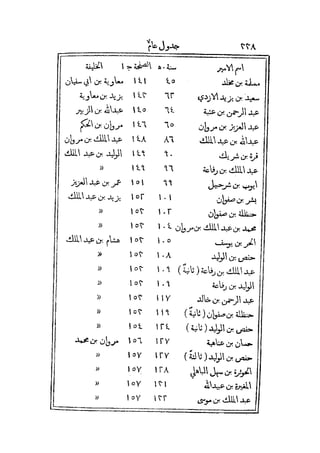 ٢٢٨ جدول عام
اسم الامير سنة الصفحة ج ١ الخليفة
مسلمة بن مخلد ٤٥ ١٤١ معاوية بن ابي سفيان
سعيد بن يزيد الازدي ٦٣ ١٤٣ يزيد بن معاوية
عبد الرحمن بن عتبة ٦٤ ١٤٥ عبدالله بن الزبير
عبد العزيز بن مروان ٦٥ ١٤٦ مروان بن الحكم
عبدالله بن عبد الملك ٨٦ ١٤٨ عبد الملك بن مروان
قرة بن شريك ٩٠ ١٤٩ الوليد بن عبد الملك
عبد الملك بن رفاعة ٩٦ ١٤٩ »
ايوب بن شرحبيل ٩٩ ١٥١ عمر بن عبد العزيز
بشر بن صفوان ١٠١ ١٥٢ يزيد بن عبد الملك
حنظلة بن صفوان ١٠٢ ١٥٢ »
محمد بن عبد الملك بن مروان ١٠٤ ١٥٢ »
الحر بن يوسف ١٠٥ ١٥٢ هشام بن عبد الملك
حفص بن الوليد ١٠٨ ١٥٢ »
عبد الملك بن رفاعة ( ثانية ) ١٠٩ ١٥٢ »
الوليد بن رفاعة ١٠٩ ١٥٣ »
عبد الرحمن بن خالد ١١٧ ١٥٣ »
حنظلة بن صفوان ( ثانية ) ١١٩ ١٥٣ »
حفص بن الوليد ( ثانية ) ١٢٤ ١٥٤ »
حسان بن عتاهية ١٢٧ ١٥٦ مروان بن محمد
حفص بن الوليد ( ثالثة ) ١٢٧ ١٥٧ »
الحوثرة بن سهيل الباهلي ١٢٨ ١٥٧ »
المغيرة بن عبيدالله ١٣١ ١٥٧ »
عبد الملك بن موسى ١٣٢ ١٥٧ »